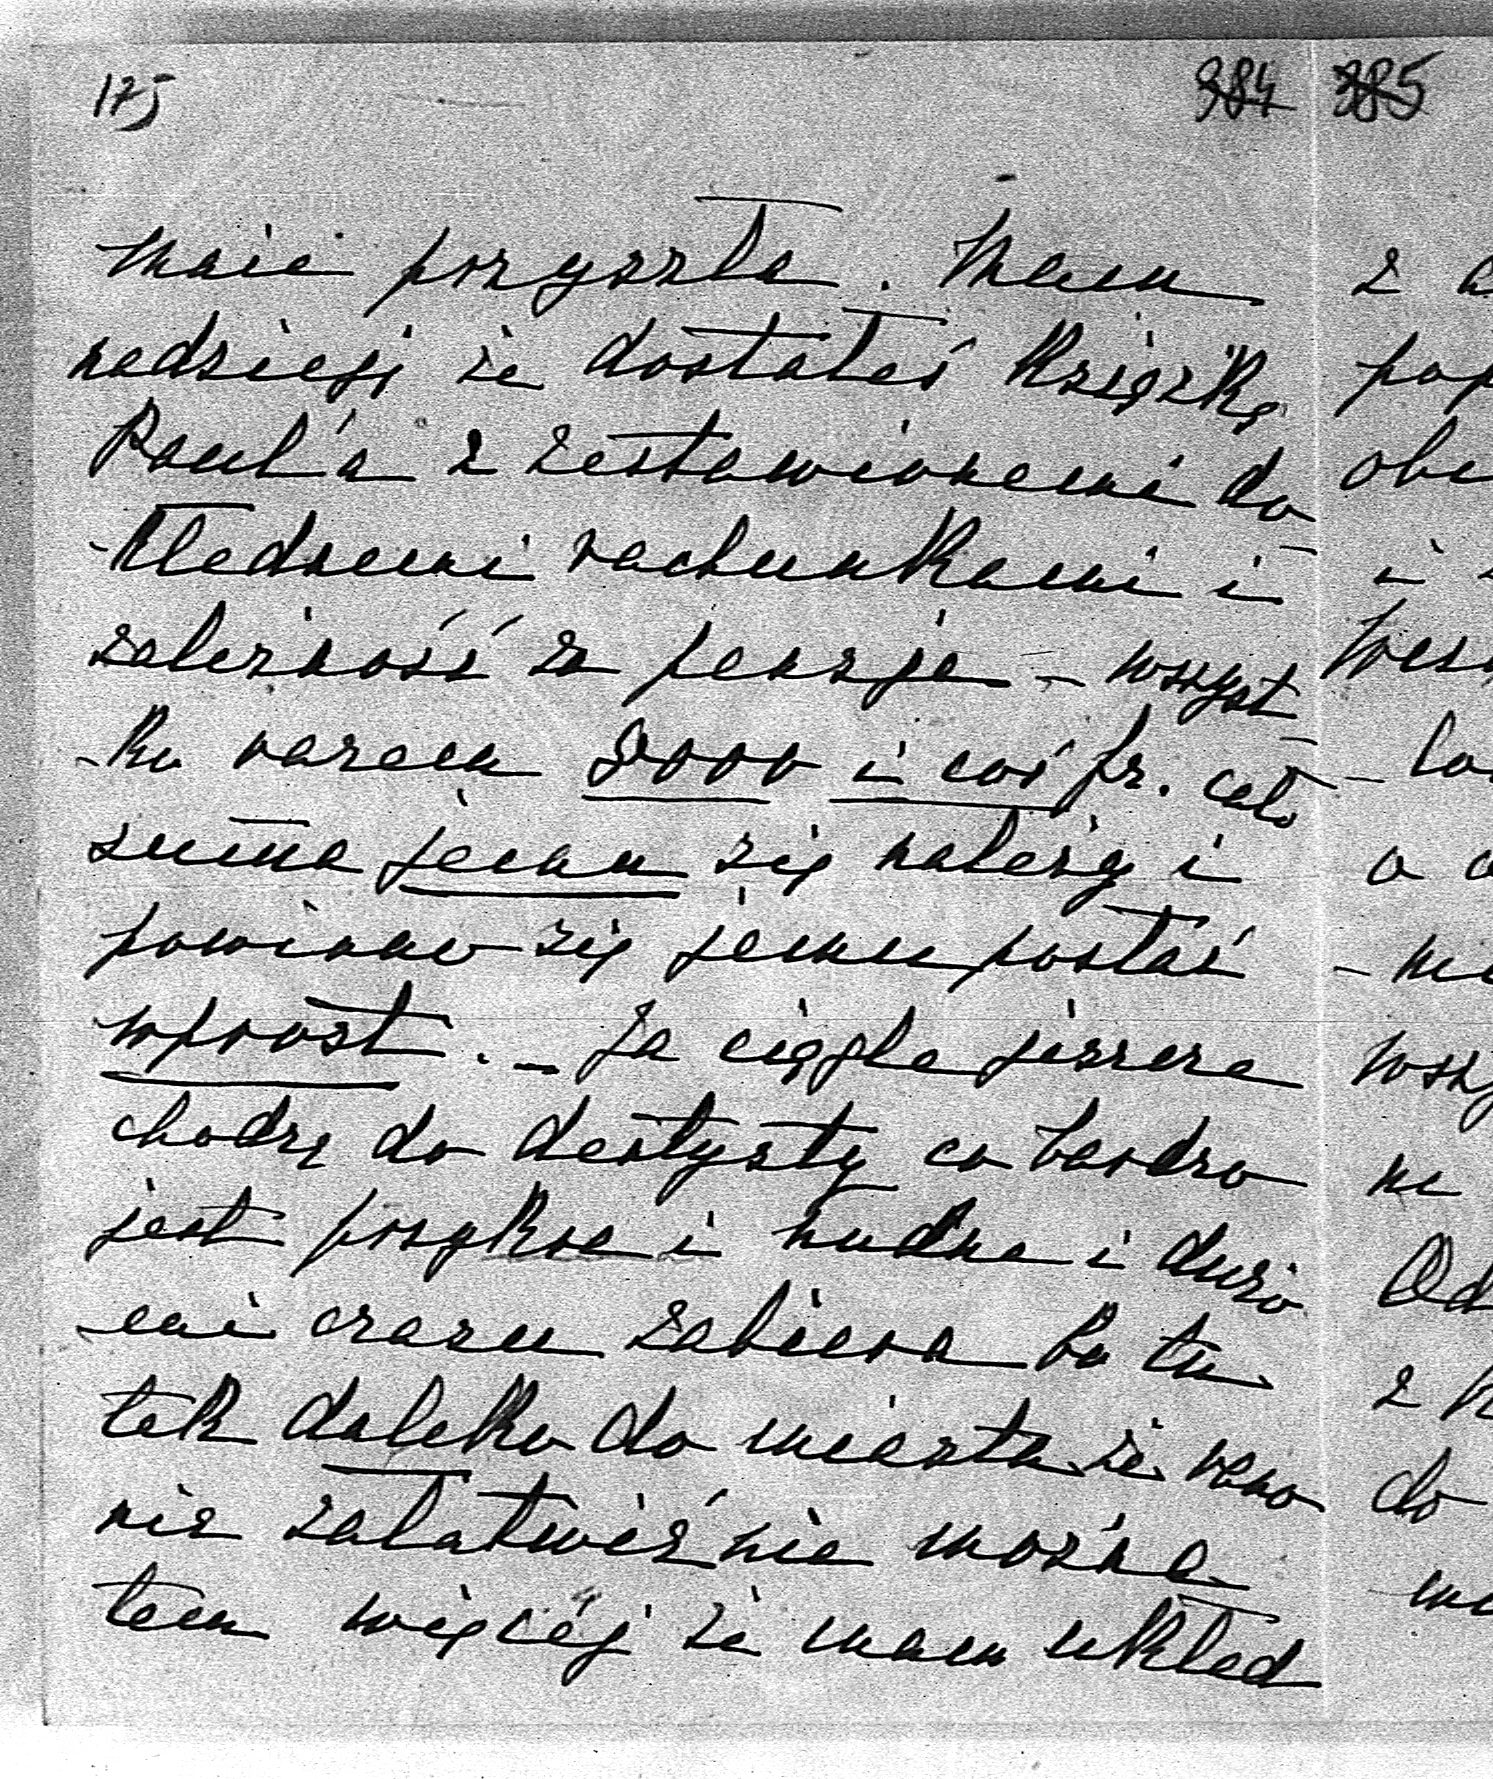 175
384 385
maie przyszła. Mam
nadzieję że dostałeś książkę
Paul'a z zestawionemi do
-kładnemi rachunkami i
należność za pensje – wszyst
-ko razem 2000 i coś fr. cała
suma jemu się należy i
powinno się jemu posłać
wprost. – Ja ciągle jeszcze
chodzę do destysty co bardzo
jest przykre i nudne i dużo
mi czasu zabiera bo tu
tak daleko do miasta że rano
nic załatwić nie można
tem więcej że mam układ
z
pop
obe
i
- la
a
- ni
wszy
ne
Od
z
do